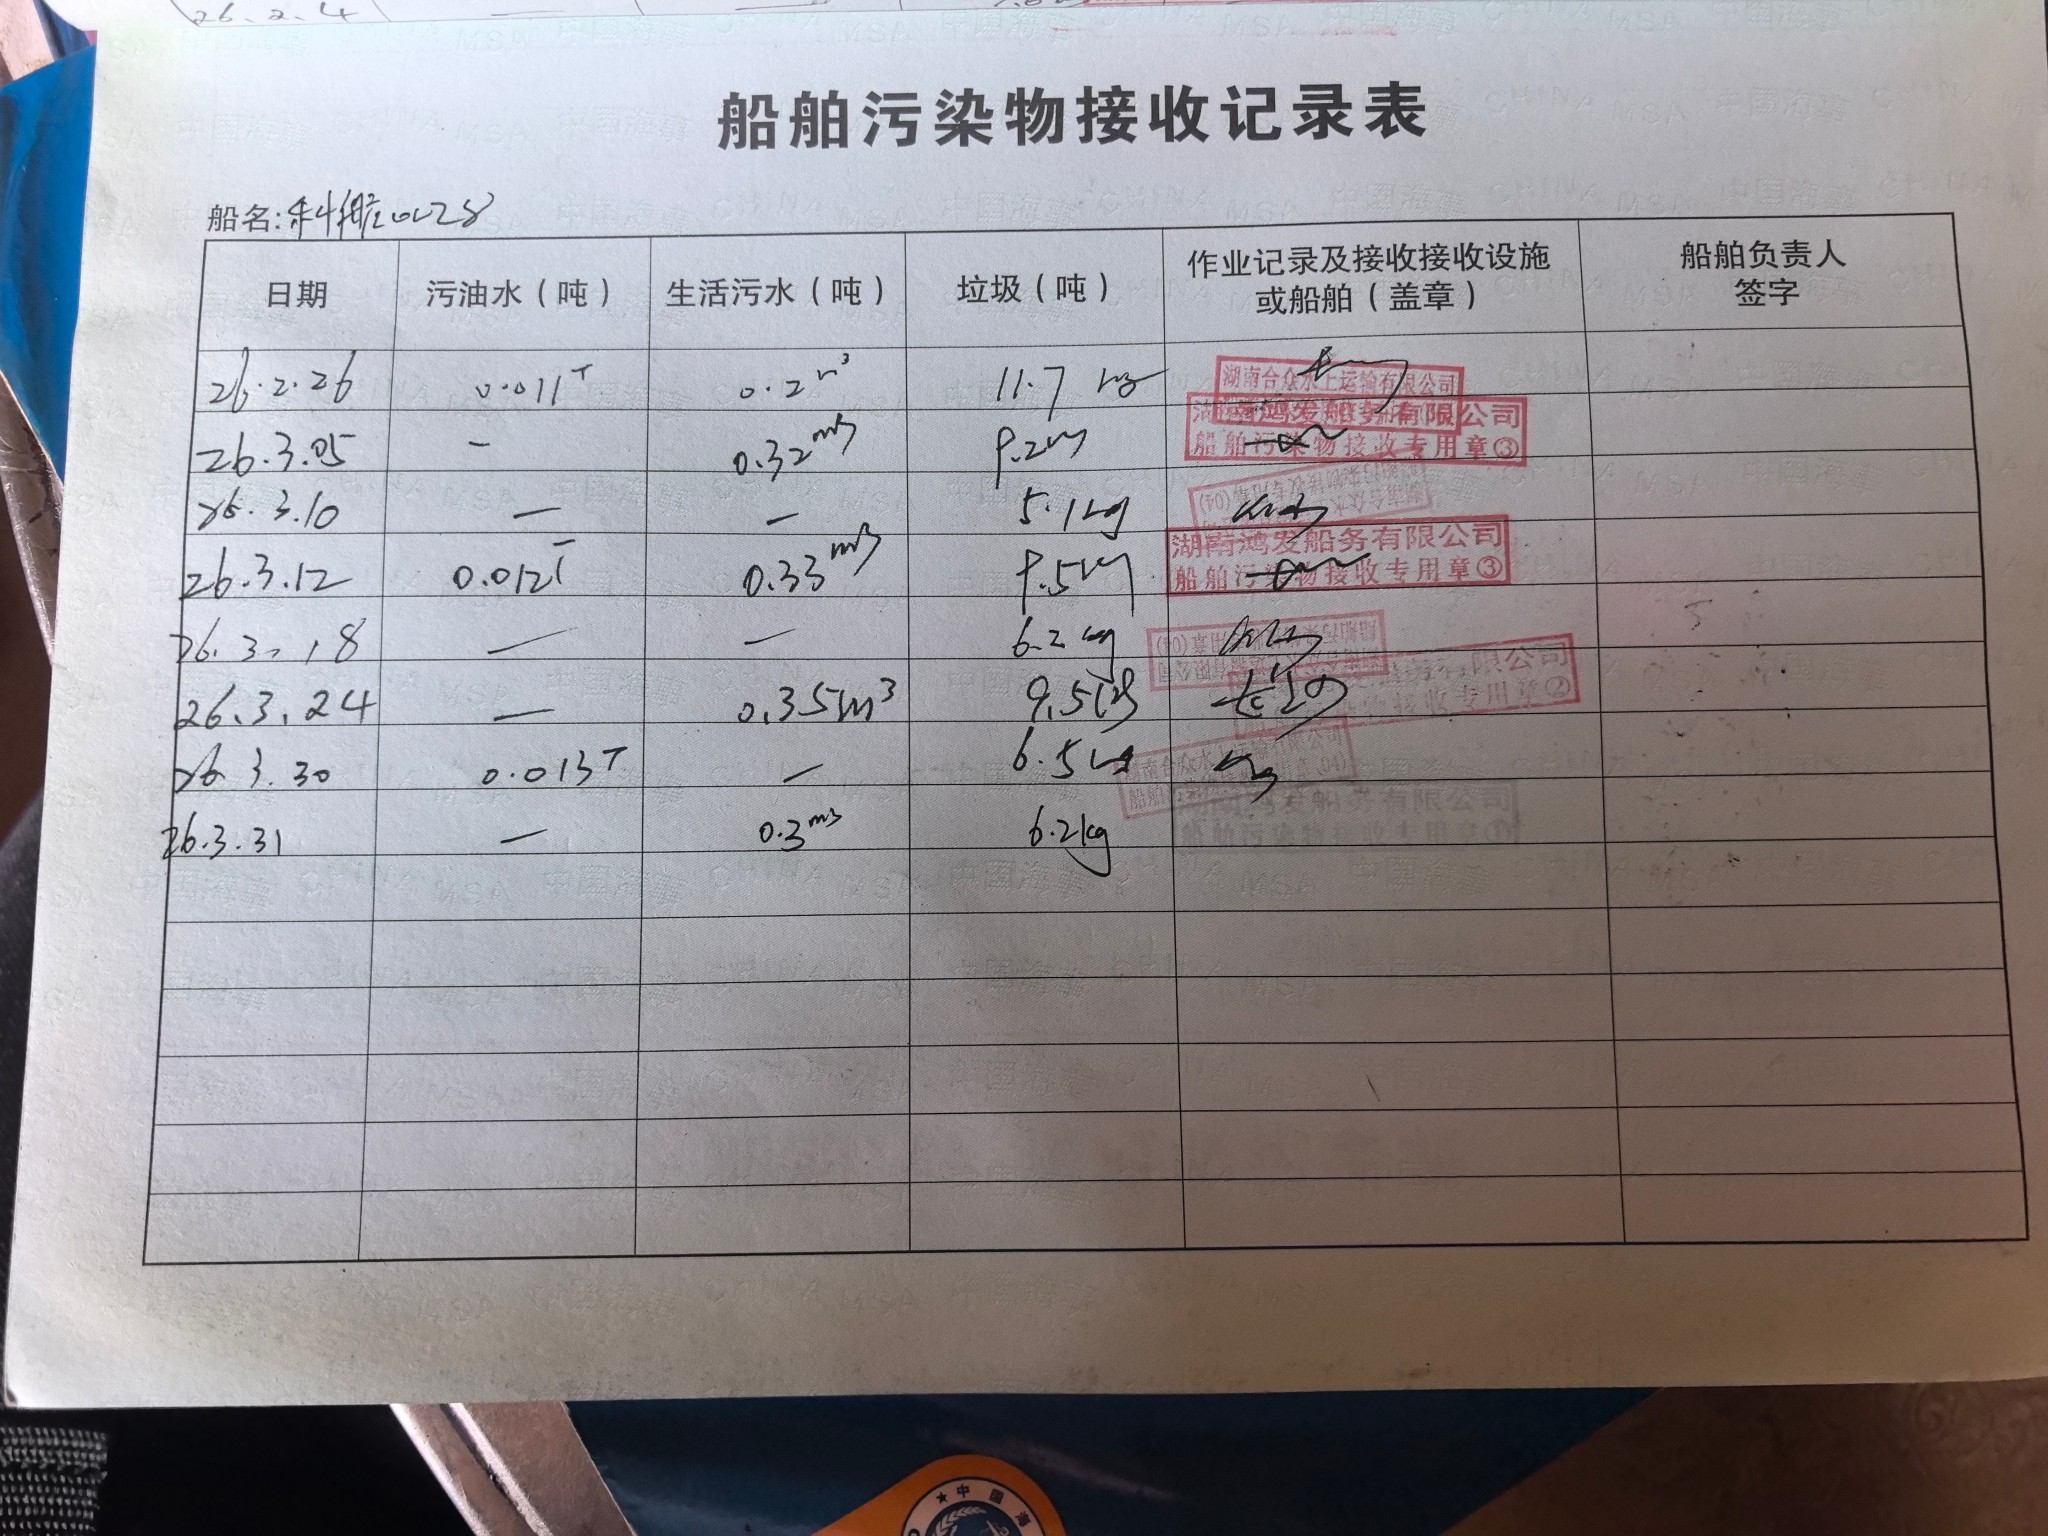 26.2.4
船舶污染物接收记录表
船名:科航0028
日期 污油水（吨） 生活污水（吨） 垃圾（吨） 作业记录及接收接收设施或船舶（盖章） 船舶负责人签字
26.2.26 0.011T 0.2m³ 11.7kg
湖南合众水上运输有限公司
湖南鸿发船务有限公司
26.3.05 - 0.32m³ 9.2kg
船舶污染物接收专用章③
26.3.10 — — 5.1kg
湖南鸿发船务有限公司
26.3.12 0.012T 0.33m³ 9.5kg
船舶污染物接收专用章③
26.3.18 — — 6.2kg
26.3.24 — 0.35m³ 9.5kg
专用章②
26.3.30 0.013T — 6.5kg
湖南合众水上运输有限公司
26.3.31 — 0.3m³ 6.2kg
鸿发船务有限公司
船舶污染物接收专用章①
中国海